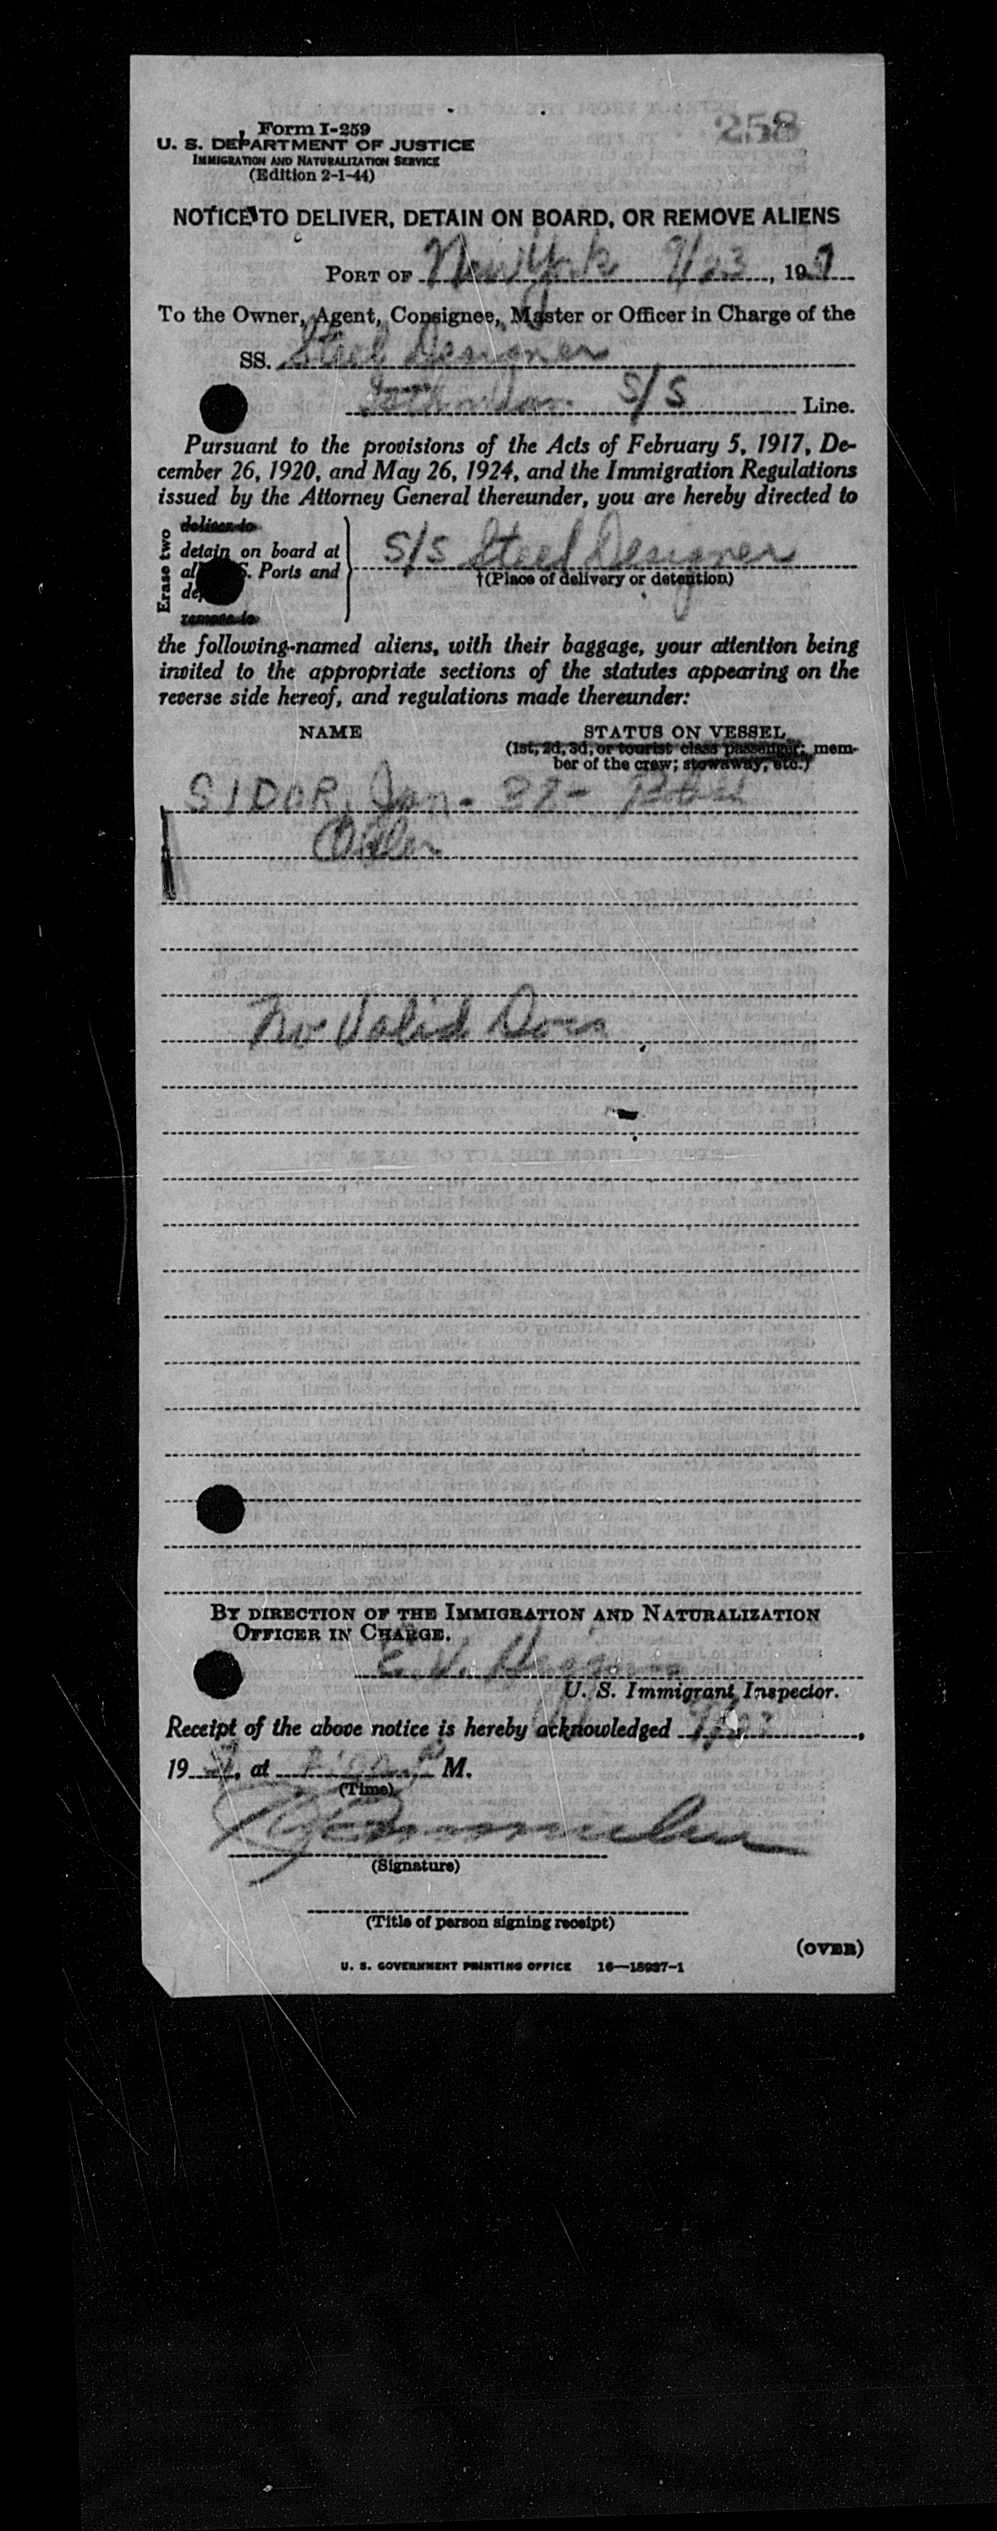 258
Form I-259
U. S. DEPARTMENT OF JUSTICE
IMMIGRATION AND NATURALIZATION SERVICE
(Edition 2-1-44)
NOTICE TO DELIVER, DETAIN ON BOARD, OR REMOVE ALIENS
PORT OF New York 9/23, 19
To the Owner, Agent, Consignee, Master or Officer in Charge of the
SS. Steel Designer
S/S Line.
Pursuant to the provisions of the Acts of February 5, 1917, De-
cember 26, 1920, and May 26, 1924, and the Immigration Regulations
issued by the Attorney General thereunder, you are hereby directed to
Erase two
deliver to
detain on board at
S. Ports and
remove to
S/S Steel Designer
†(Place of delivery or detention)
the following-named aliens, with their baggage, your attention being
invited to the appropriate sections of the statutes appearing on the
reverse side hereof, and regulations made thereunder:
NAME STATUS ON VESSEL
(1st, 2d, 3d, or tourist class passenger; mem-
ber of the crew; stowaway, etc.)
SIDOR, Jan -
Oiler
No Valid Docs
BY DIRECTION OF THE IMMIGRATION AND NATURALIZATION
OFFICER IN CHARGE.
E. V.
U. S. Immigrant Inspector.
Receipt of the above notice is hereby acknowledged 9/23,
19, at M.
(Time)
(Signature)
(Title of person signing receipt)
(OVER)
U. S. GOVERNMENT PRINTING OFFICE 16—18937-1